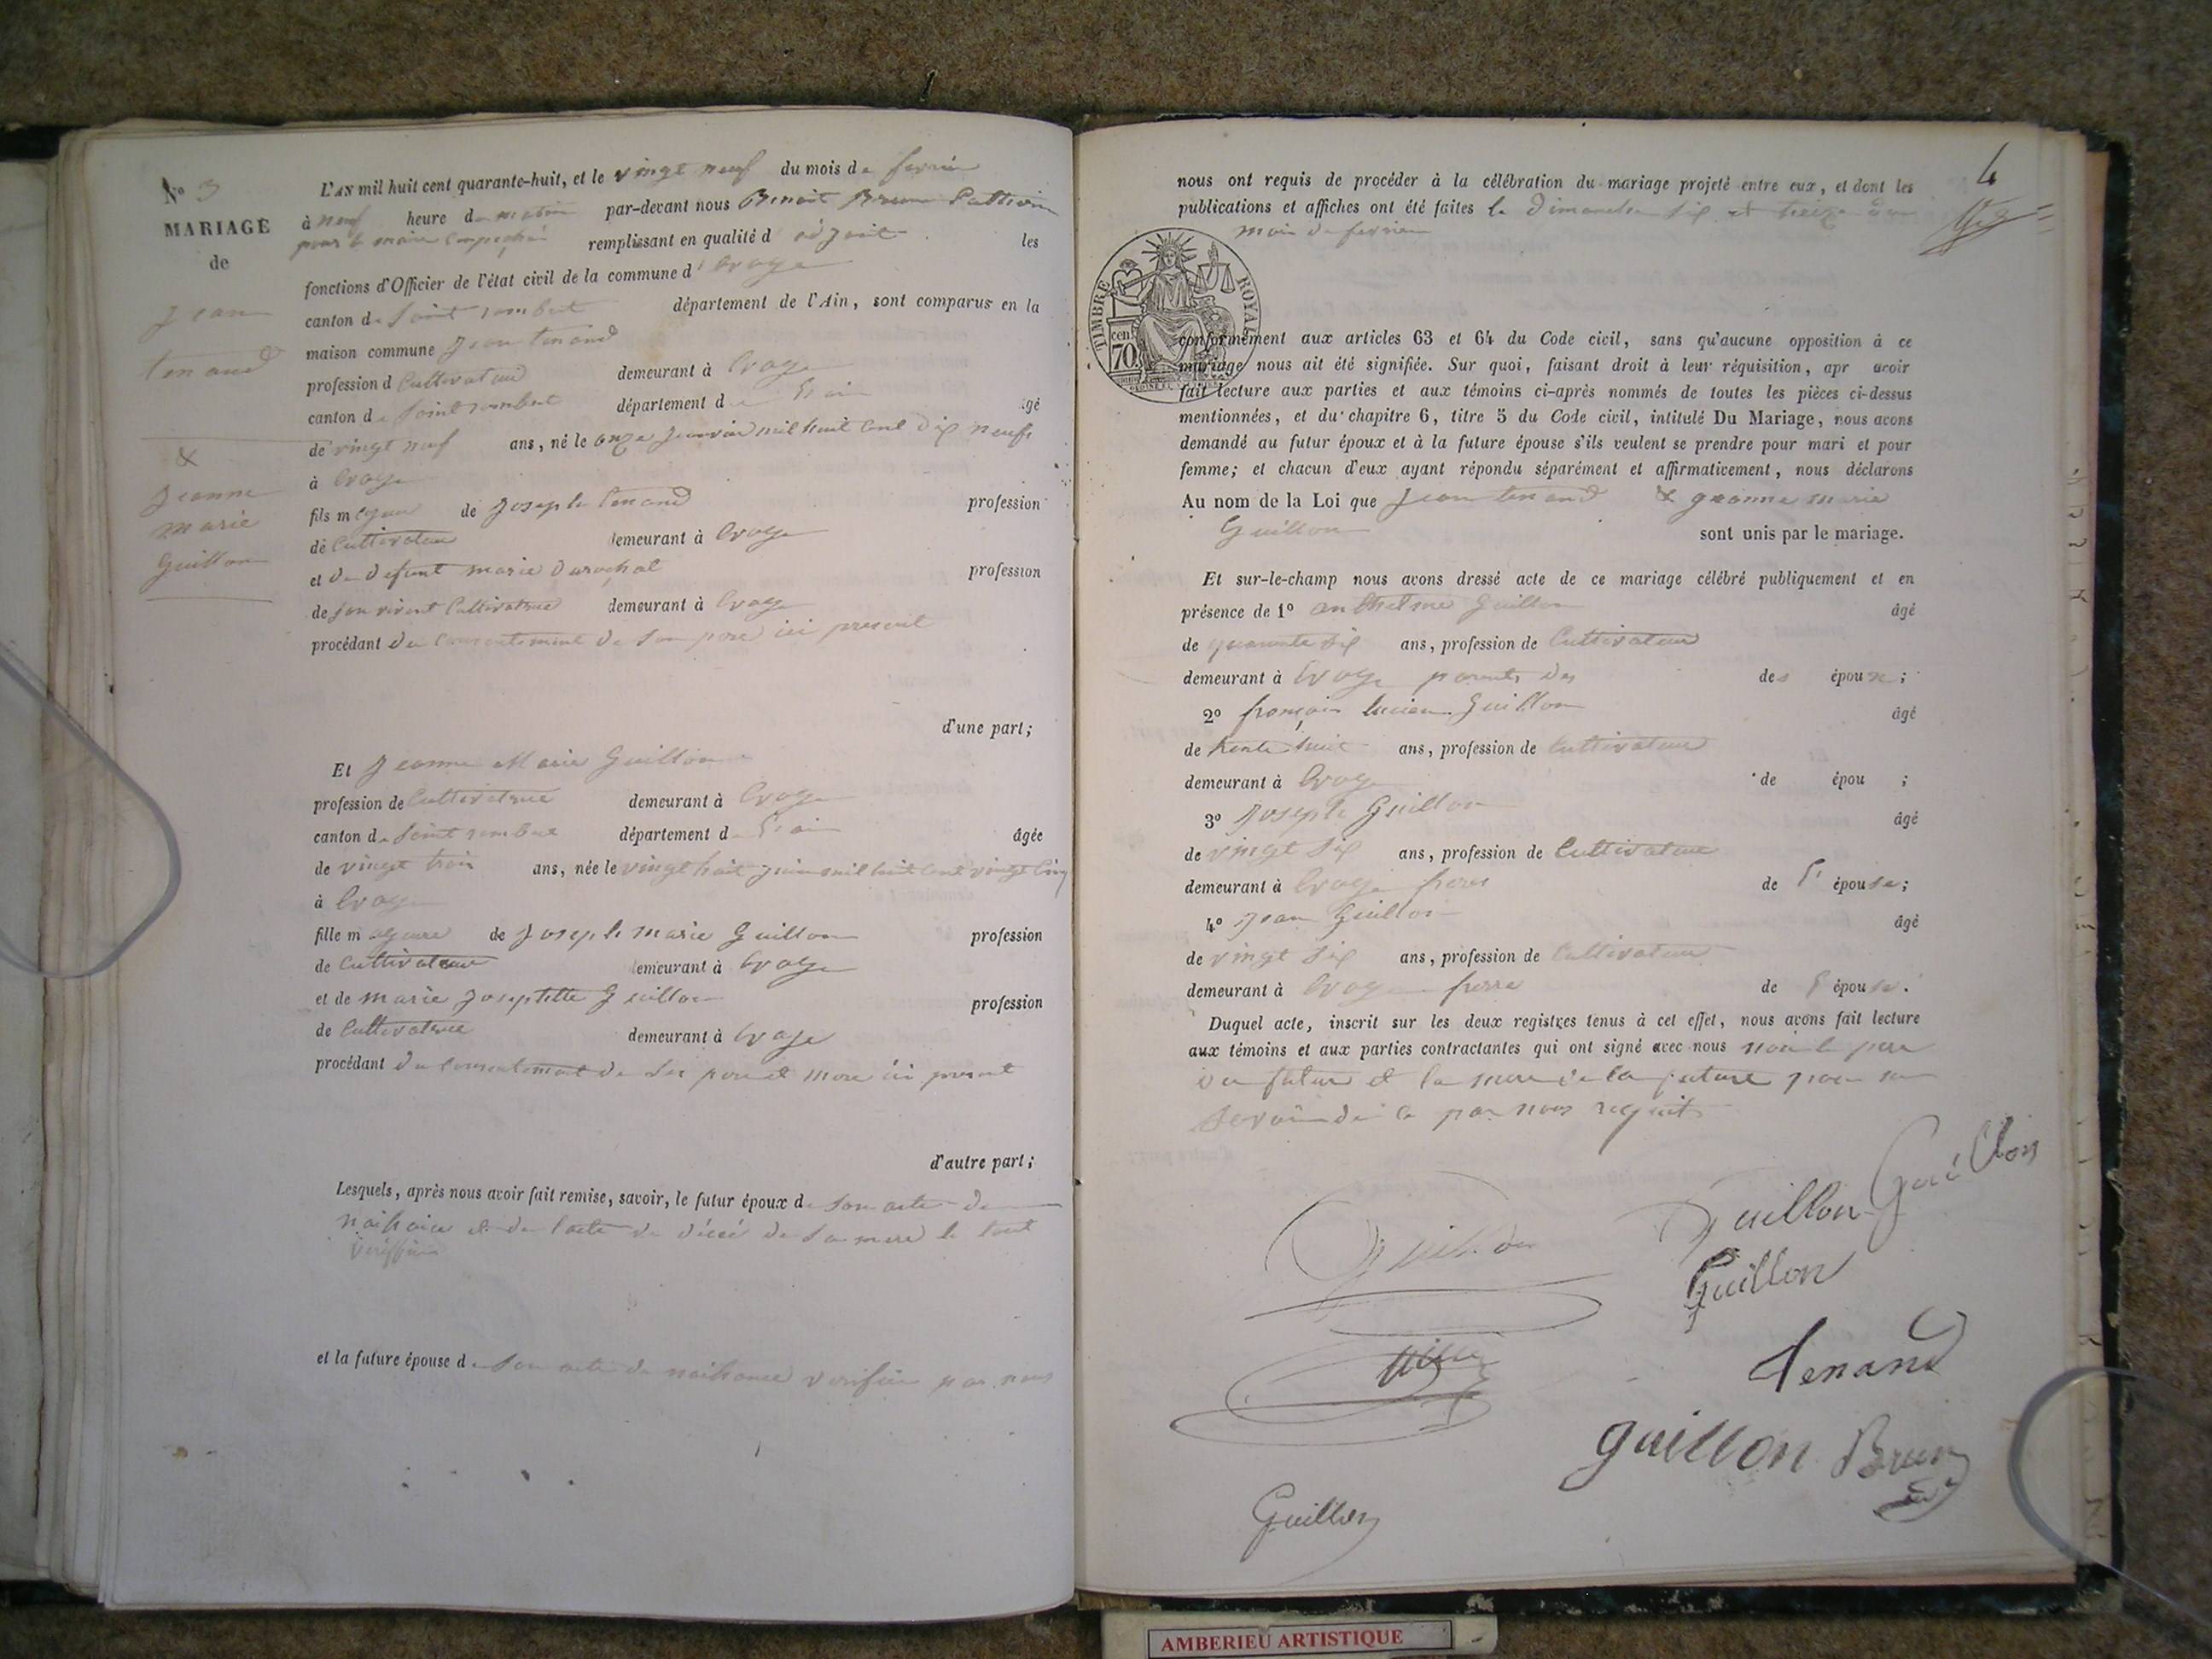 N° 3
MARIAGE
de
Jean
tenand
&
Jeanne
marie
Guillon
L'AN mil huit cent quarante-huit, et le vingt neuf du mois de fevrier
à neuf heure du matin par-devant nous Benoit Brun
pour le maire remplissant en qualité d'adjoint les
fonctions d'Officier de l'état civil de la commune d'
canton de Saint rambert département de l'Ain, sont comparus en la
maison commune Jean tenand
profession d Cultivateur demeurant à
canton de Saint rambert département de l'ain âgé
de vingt neuf ans, né le onze Janvier mil huit cent dix neuf
à
fils majeur de Joseph tenand profession
de Cultivateur demeurant à
et de defunt marie profession
de son vivant Cultivatrice demeurant à
procédant du consentement de son pere ici present
d'une part;
Et Jeanne Marie Guillon
profession de Cultivatrice demeurant à
canton de Saint rambert département de l'ain âgée
de vingt trois ans, née le vingt huit juin mil huit cent vingt cinq
à
fille majeure de Joseph marie Guillon profession
de Cultivateur demeurant à
et de marie Josephtte Guillon profession
de Cultivatrice demeurant à
procédant du consentement de ses pere et mere ici present
d'autre part;
Lesquels, après nous avoir fait remise, savoir, le futur époux de son acte de
naissance et de l'acte de décé de sa mere le tout
et la future épouse de son acte de naissance verifiée par nous
4
nous ont requis de procéder à la célébration du mariage projeté entre eux, et dont les
publications et affiches ont été faites le Dimanche six et treize du
mois de fevrier
TIMBRE ROYAL
cent.
70.
conformément aux articles 63 et 64 du Code civil, sans qu'aucune opposition à ce
mariage nous ait été signifiée. Sur quoi, faisant droit à leur réquisition, apr avoir
fait lecture aux parties et aux témoins ci-après nommés de toutes les pièces ci-dessus
mentionnées, et du chapitre 6, titre 5 du Code civil, intitulé Du Mariage, nous avons
demandé au futur époux et à la future épouse s'ils veulent se prendre pour mari et pour
femme; et chacun d'eux ayant répondu séparément et affirmativement, nous déclarons
Au nom de la Loi que Jean tenand & Jeanne marie
Guillon sont unis par le mariage.
Et sur-le-champ nous avons dressé acte de ce mariage célébré publiquement et en
présence de 1° anthelme Guillon âgé
de quarante six ans, profession de Cultivateur
demeurant à parents des des époux;
2° françois lucien Guillon âgé
de trente huit ans, profession de Cultivateur
demeurant à de épou ;
3° Joseph Guillon âgé
de vingt six ans, profession de Cultivateur
demeurant à freres de l'épouse;
4° Jean Guillon âgé
de vingt six ans, profession de Cultivateur
demeurant à frere de l'épouse.
Duquel acte, inscrit sur les deux registres tenus à cet effet, nous avons fait lecture
aux témoins et aux parties contractantes qui ont signé avec nous non le pere
du futur et la mere de la future pour ne
savoir de ce par nous requit
Guillon Guillon
Guillon
Guillon
tenand
guillon Brun
Guillon
AMBERIEU ARTISTIQUE